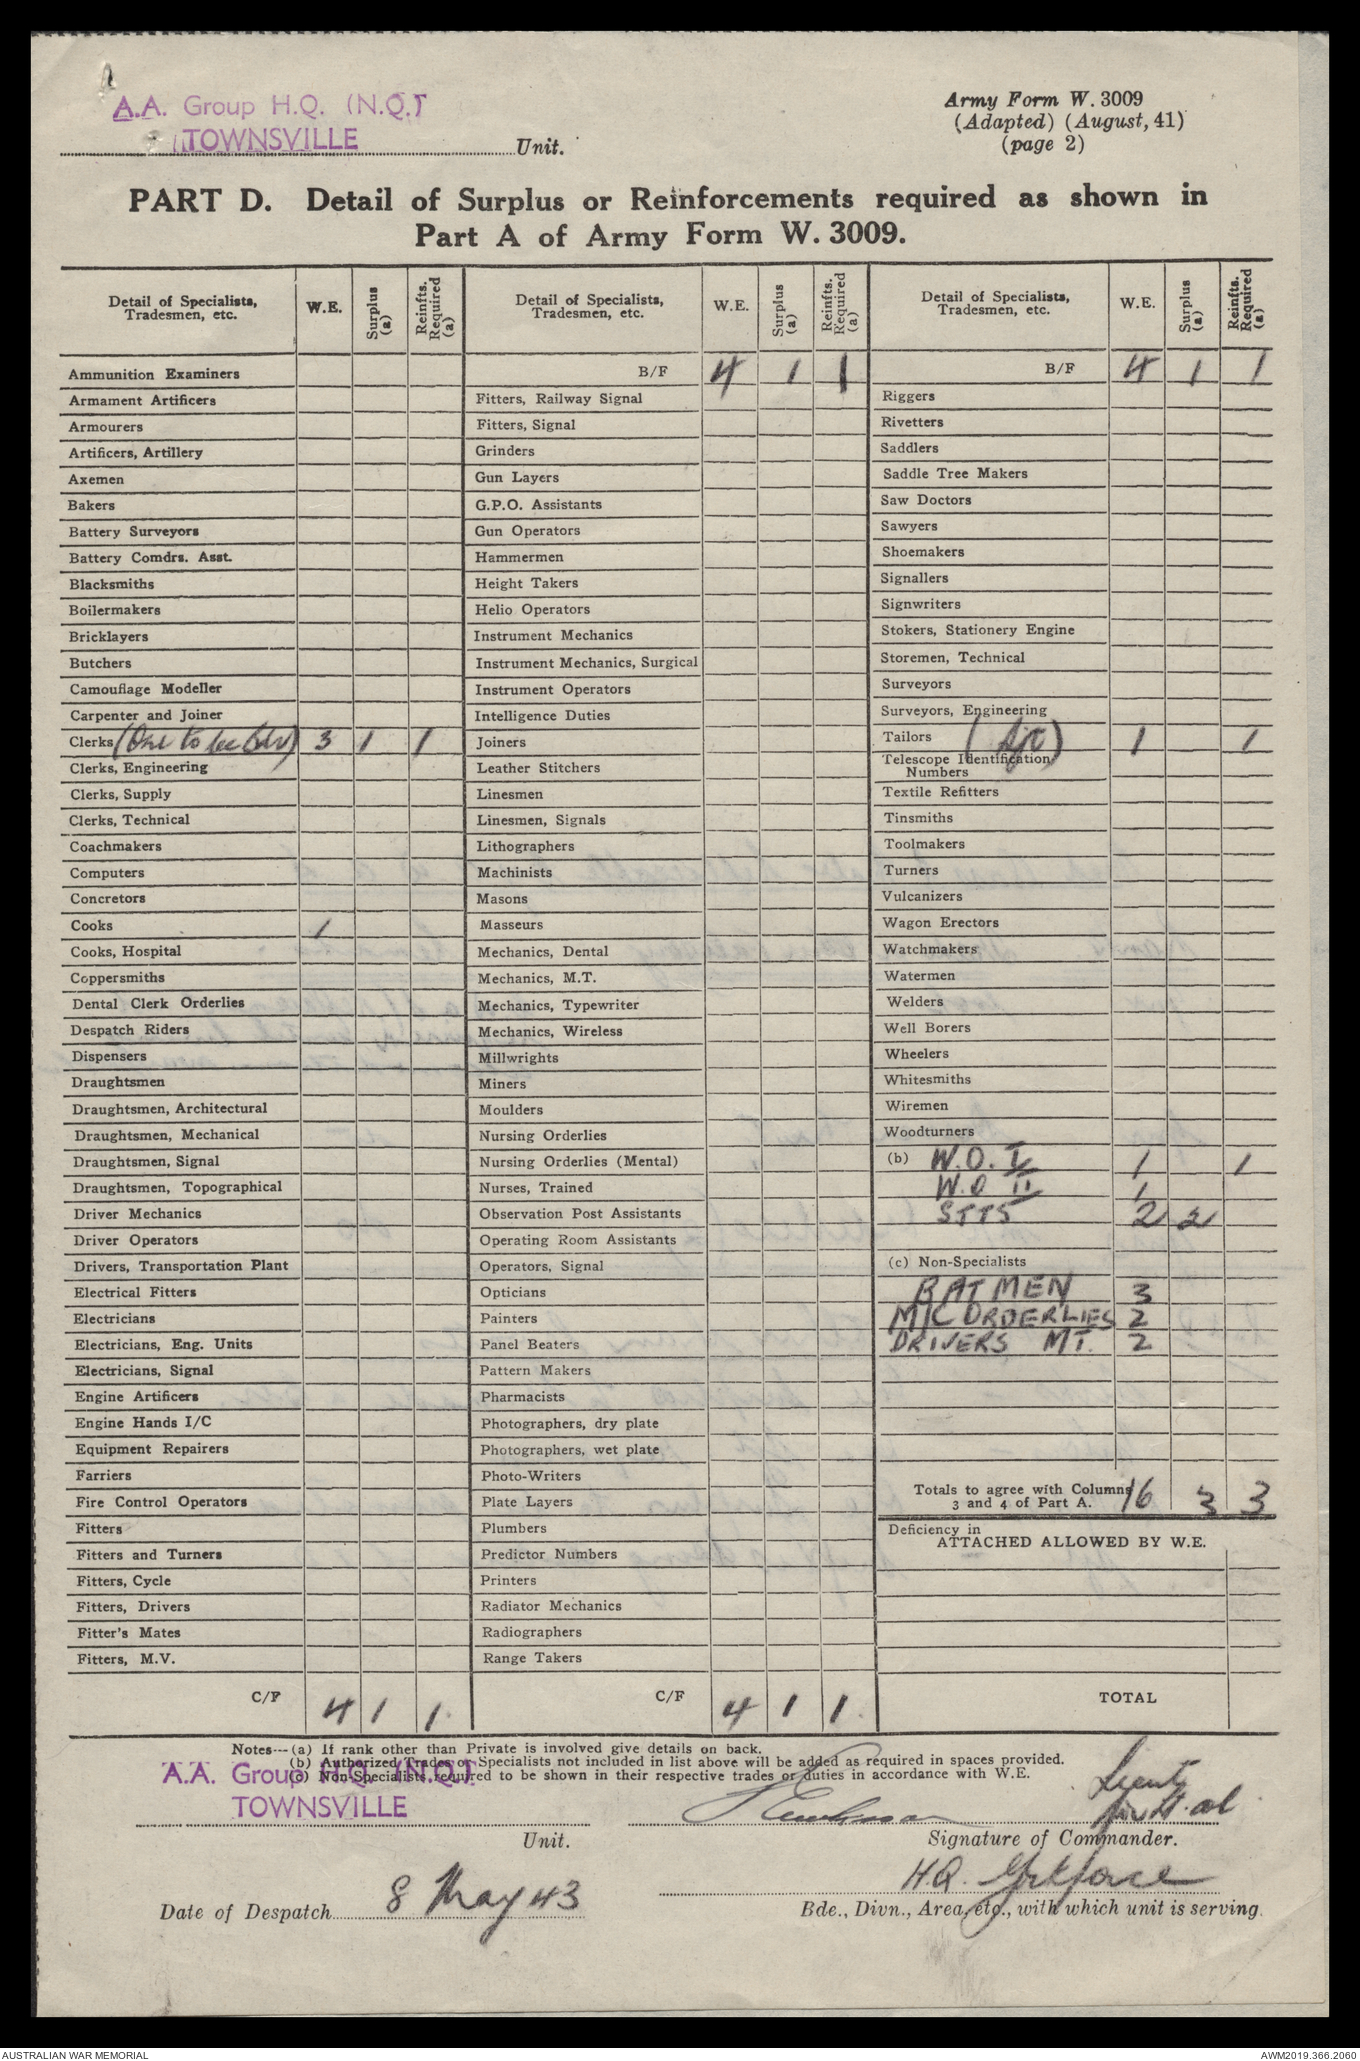 A.A. Group H.Q. (N.Q.)
TOWNSVILLE
Unit.
Army Form W. 3009
(Adapted) (August, 41)
(page 2)
PART D. Detail of Surplus or Reinforcements required as shown in
Part A of Army Form W. 3009.
Detail of Specialists, Tradesmen, etc. W.E. Surplus (a) Reinfts. Required (a)
Ammunition Examiners
Armament Artificers
Armourers
Artificers, Artillery
Axemen
Bakers
Battery Surveyors
Battery Comdrs. Asst.
Blacksmiths
Boilermakers
Bricklayers
Butchers
Camouflage Modeller
Carpenter and Joiner
Clerks (One to be Bdr) 3 1 1
Clerks, Engineering
Clerks, Supply
Clerks, Technical
Coachmakers
Computers
Concretors
Cooks 1
Cooks, Hospital
Coppersmiths
Dental Clerk Orderlies
Despatch Riders
Dispensers
Draughtsmen
Draughtsmen, Architectural
Draughtsmen, Mechanical
Draughtsmen, Signal
Draughtsmen, Topographical
Driver Mechanics
Driver Operators
Drivers, Transportation Plant
Electrical Fitters
Electricians
Electricians, Eng. Units
Electricians, Signal
Engine Artificers
Engine Hands I/C
Equipment Repairers
Farriers
Fire Control Operators
Fitters
Fitters and Turners
Fitters, Cycle
Fitters, Drivers
Fitter's Mates
Fitters, M.V.
C/F 4 1 1
Detail of Specialists, Tradesmen, etc. W.E. Surplus (a) Reinfts. Required (a)
B/F 4 1 1
Fitters, Railway Signal
Fitters, Signal
Grinders
Gun Layers
G.P.O. Assistants
Gun Operators
Hammermen
Height Takers
Helio Operators
Instrument Mechanics
Instrument Mechanics, Surgical
Instrument Operators
Intelligence Duties
Joiners
Leather Stitchers
Linesmen
Linesmen, Signals
Lithographers
Machinists
Masons
Masseurs
Mechanics, Dental
Mechanics, M.T.
Mechanics, Typewriter
Mechanics, Wireless
Millwrights
Miners
Moulders
Nursing Orderlies
Nursing Orderlies (Mental)
Nurses, Trained
Observation Post Assistants
Operating Room Assistants
Operators, Signal
Opticians
Painters
Panel Beaters
Pattern Makers
Pharmacists
Photographers, dry plate
Photographers, wet plate
Photo-Writers
Plate Layers
Plumbers
Predictor Numbers
Printers
Radiator Mechanics
Radiographers
Range Takers
C/F 4 1 1
Detail of Specialists, Tradesmen, etc. W.E. Surplus (a) Reinfts. Required (a)
B/F 4 1 1
Riggers
Rivetters
Saddlers
Saddle Tree Makers
Saw Doctors
Sawyers
Shoemakers
Signallers
Signwriters
Stokers, Stationery Engine
Storemen, Technical
Surveyors
Surveyors, Engineering
Tailors (Sjt) 1 1
Telescope Identification
Numbers
Textile Refitters
Tinsmiths
Toolmakers
Turners
Vulcanizers
Wagon Erectors
Watchmakers
Watermen
Welders
Well Borers
Wheelers
Whitesmiths
Wiremen
Woodturners
(b) W.O. I 1 1
W.O II 1
SJTS 2 2
(c) Non-Specialists
BATMEN 3
M/C ORDERLIES 2
DRIVERS MT. 2
Totals to agree with Columns
3 and 4 of Part A. 16 3 3
Deficiency in
ATTACHED ALLOWED BY W.E.
TOTAL
Notes---(a) If rank other than Private is involved give details on back.
(b) Authorized Trades or Specialists not included in list above will be added as required in spaces provided.
(c) Non-Specialists required to be shown in their respective trades or duties in accordance with W.E.
A.A. Group H.Q. (N.Q.)
TOWNSVILLE
Unit.
Lieut
Signature of Commander.
Date of Despatch 8 May 43
H.Q. Yorkforce
Bde., Divn., Area, etc., with which unit is serving.
AUSTRALIAN WAR MEMORIAL
AWM2019.366.2060